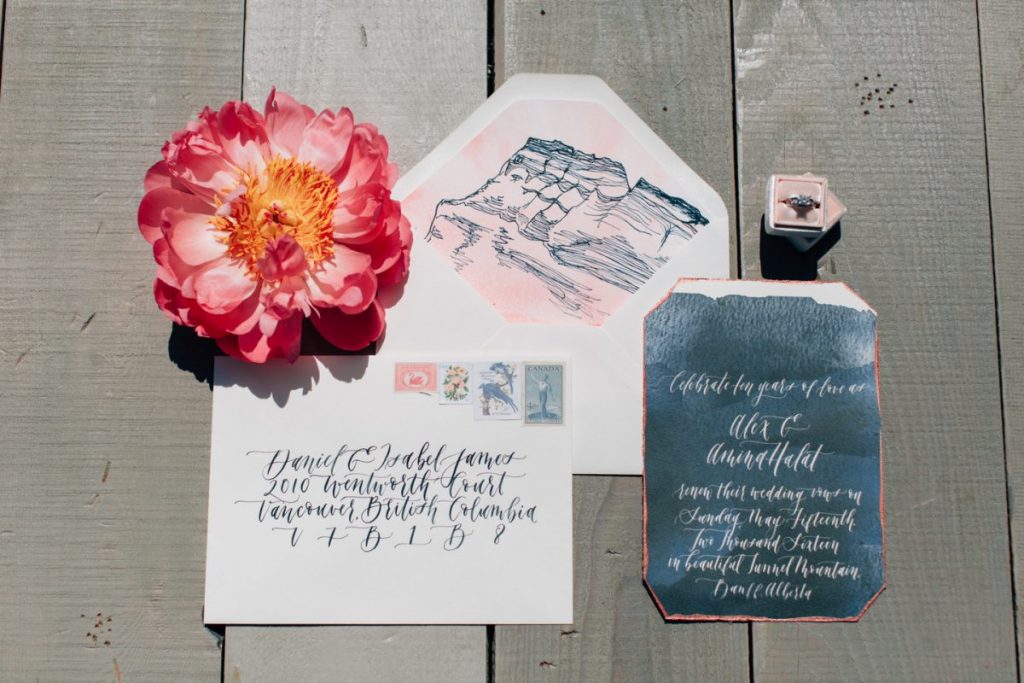 CANADA
Daniel & Isabel James
2010 Wentworth Court
Vancouver, British Columbia
V 7 B 1 B 8
Celebrate ten years of love as
Alex &
Amina Halat
renew their wedding vows on
Sunday May Fifteenth
Two Thousand Sixteen
in beautiful Tunnel Mountain,
Banff, Alberta